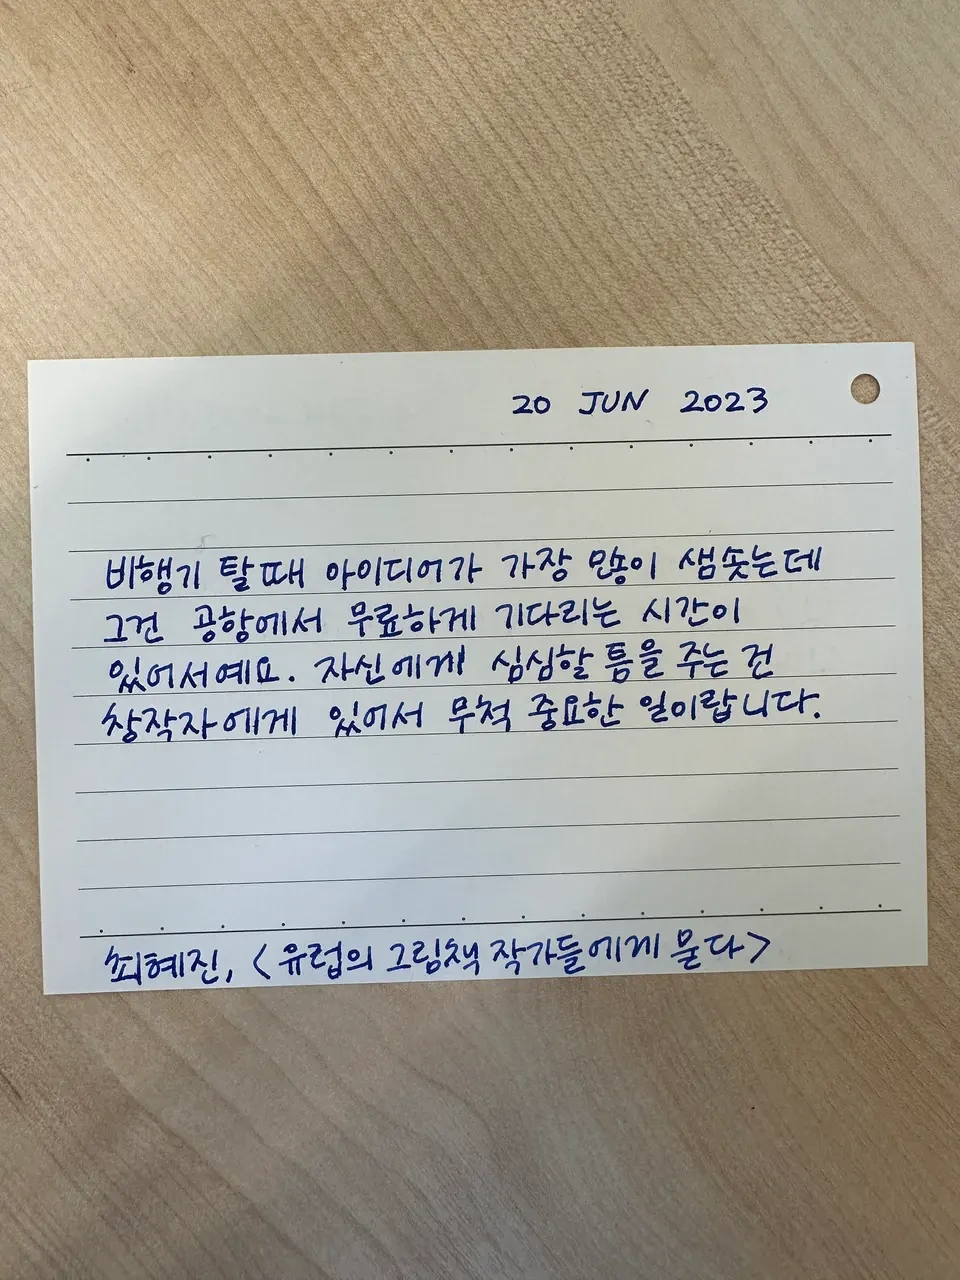 20 JUN 2023
비행기 탈때 아이디어가 가장 많이 샘솟는데
그건 공항에서 무료하게 기다리는 시간이
있어서예요. 자신에게 심심할 틈을 주는 건
창작자에게 있어서 무척 중요한 일이랍니다.
최혜진, <유럽의 그림책 작가들에게 묻다>